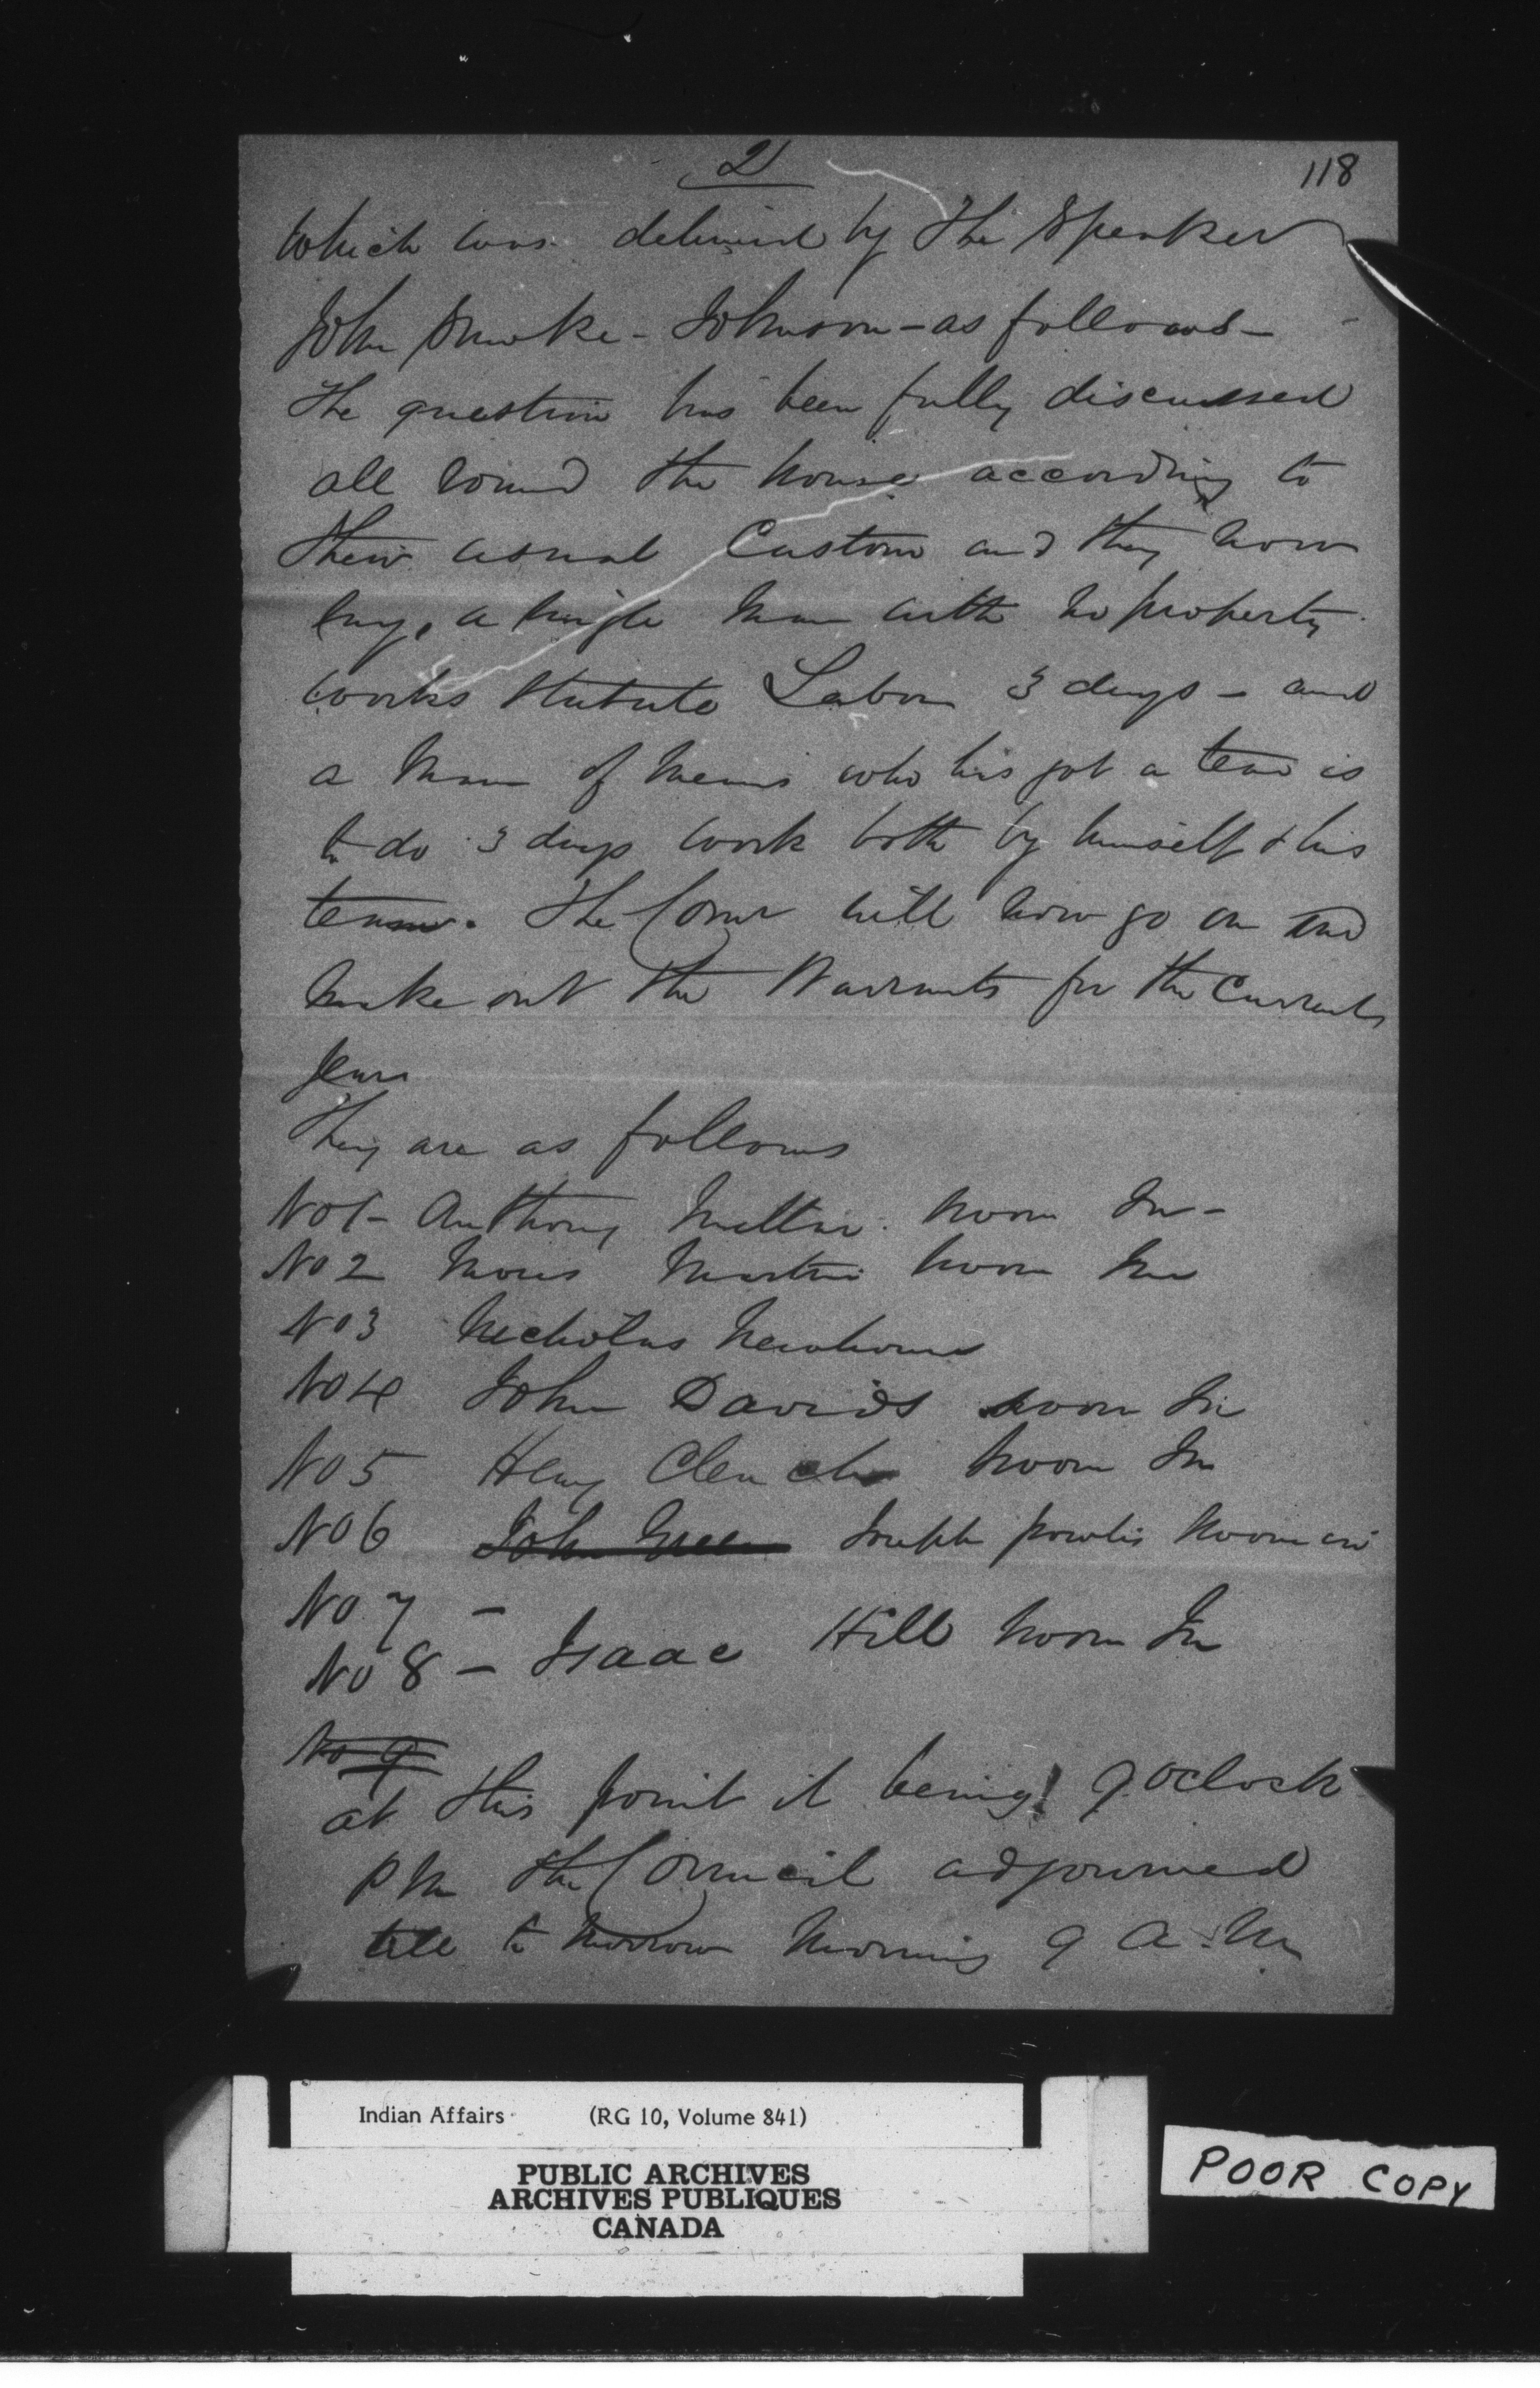 2
118
Which was delivered by The Speaker
John Smoke - Johnson - as follows -
The question has been fully discussed
all round the house according to
their usual Custom and they now
say, a single man with no property
works Statute Labor 3 days - and
a man of means who has got a team is
to do 3 days work both by himself & his
team. The Council will now go on and
make out the Warrants for the Current
Year
They are as follows
No 1 - Anthony sworn In -
No 2 Moses Martin sworn In
No 3 Nicholas Newhouse
No 4 John Davids sworn In
No 5 Henry Clench sworn In
No 6 John Green Joseph Powlis sworn in
No 7 -
No 8 - Isaac Hill sworn In
No 9
at this point it being 9 oclock
P M the Council adjourned
till to morrow morning 9 A.M
Indian Affairs (RG 10, Volume 841)
PUBLIC ARCHIVES
ARCHIVES PUBLIQUES
CANADA
POOR COPY